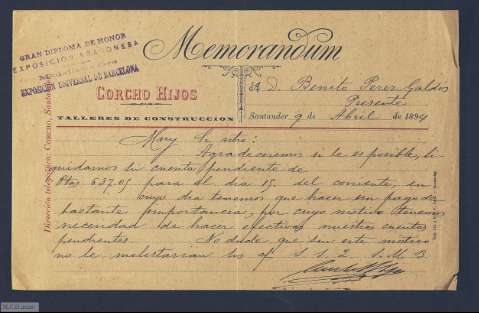 GRAN DIPLOMA DE HONOR
EXPOSICIÓN ARAGONESA
EXPOSICIÓN UNIVERSAL DE BARCELONA
Memorandum
CORCHO HIJOS
TALLERES DE CONSTRUCCION
Dirección telegráfica: CORCHO, Santander
á D. Benito Perez Galdós
Presente
Santander 9 de Abril de 1894
Muy Sr. ntro:
Agradeceremos si le es posible, li-
quidarnos su cuenta pendiente de
Ptas 637.05 para el dia 15 del corriente, en
cuyo dia tenemos que hacer un pago de
bastante importancia, por cuyo motivo tenemos
necesidad de hacer efectivas nuestras cuentas
pendientes. No dude que sin este motivo
no le molestarian